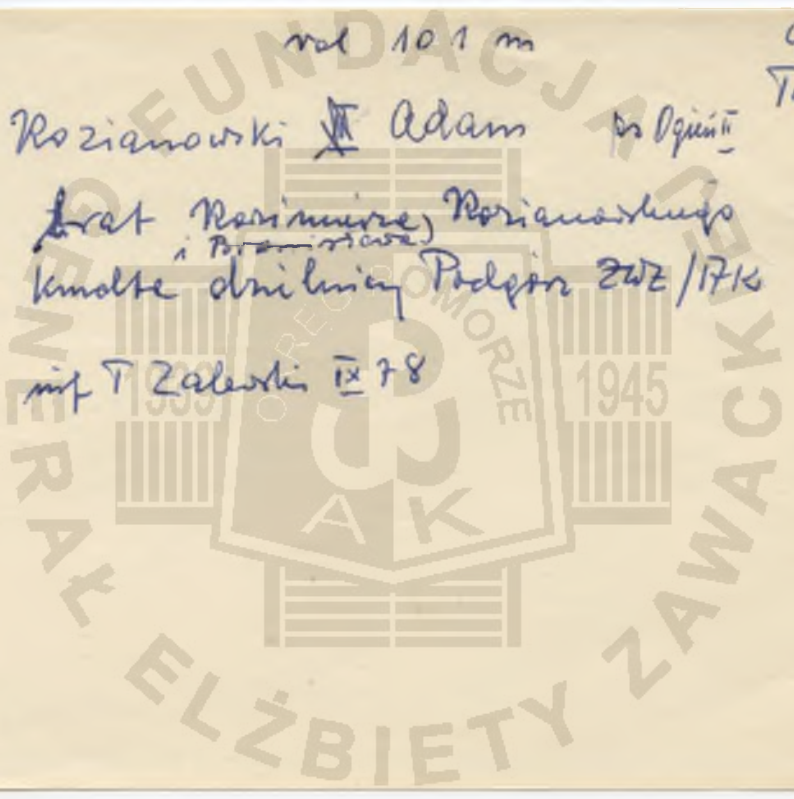 rol 101 m
Rozianowski VII Adam ps Ogień II
brat Kazimierza) Rozianowskiego
i Bronisława)
Kmdta dzielnicy Podgórz ZWZ/AK
inf T Zalewski IX 78
FUNDACJA GENERAŁ ELŻBIETY ZAWACKIEJ
OKRĘG POMORZE
1939 1945
AK